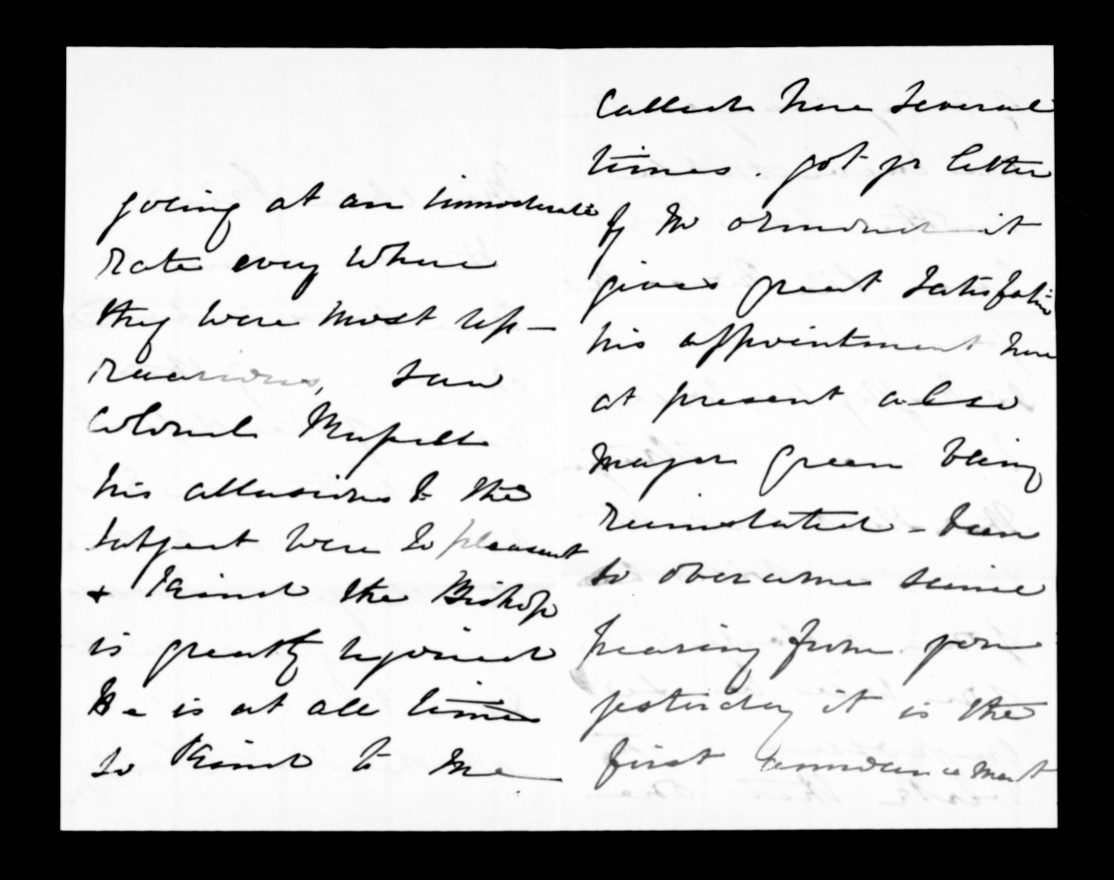 going at an immoderate
rate every where
they were most up-
roarious, saw
Colonel Russell
his allusions to the
subject were so pleasant
& kind the Bishop
is greatly rejoiced
He is at all times
so kind to me
Called here several
times. got yr letter
of Mr Ormond it
gives great satisfaction
his appointment here
at present also
Major Green being
reinstated - been
so overcome since
hearing from you
yesterday it is the
first announcement